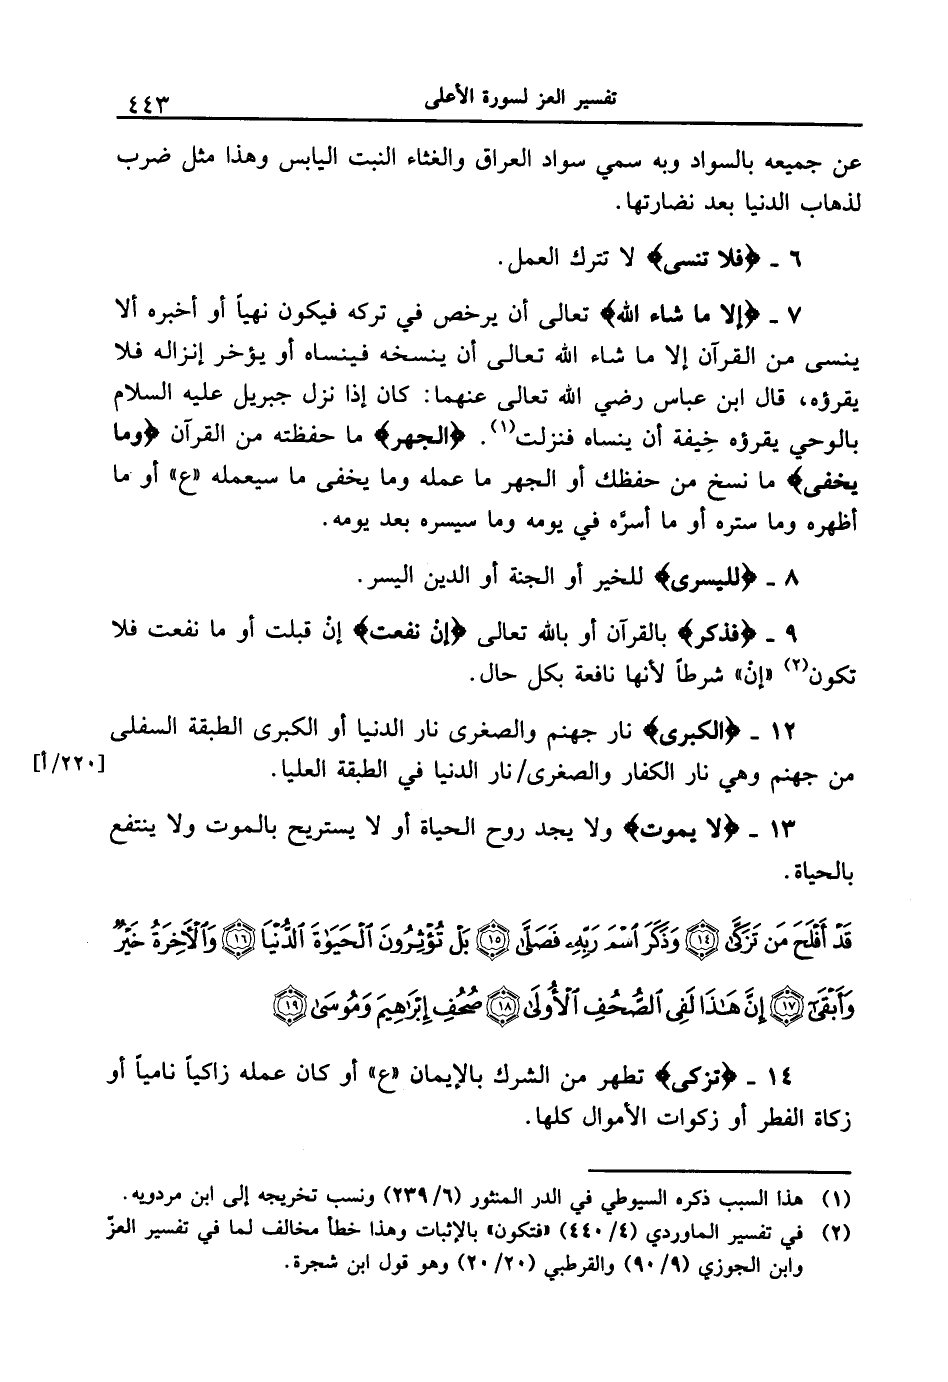 تفسير العز لسورة الأعلى
٤٤٣
عن جميعه بالسواد وبه سمي سواد العراق والغثاء النبت اليابس وهذا مثل ضرب
لذهاب الدنيا بعد نضارتها.
٦ ـ ﴿فلا تنسى﴾ لا تترك العمل.
٧ ـ ﴿إلا ما شاء الله﴾ تعالى أن يرخص في تركه فيكون نهياً أو أخبره ألا
ينسى من القرآن إلا ما شاء الله تعالى أن ينسخه فينساه أو يؤخر إنزاله فلا
يقرؤه، قال ابن عباس رضي الله تعالى عنهما: كان إذا نزل جبريل عليه السلام
بالوحي يقرؤه خِيفة أن ينساه فنزلت(١). ﴿الجهر﴾ ما حفظته من القرآن ﴿وما
يخفى﴾ ما نسخ من حفظك أو الجهر ما عمله وما يخفى ما سيعمله «ع» أو ما
أظهره وما ستره أو ما أسرَّه في يومه وما سيسره بعد يومه.
٨ ـ ﴿لليسرى﴾ للخير أو الجنة أو الدين اليسر.
٩ ـ ﴿فذكر﴾ بالقرآن أو بالله تعالى ﴿إنْ نفعت﴾ إنْ قبلت أو ما نفعت فلا
تكون(٢) «إنْ» شرطاً لأنها نافعة بكل حال.
١٢ ـ ﴿الكبرى﴾ نار جهنم والصغرى نار الدنيا أو الكبرى الطبقة السفلى
من جهنم وهي نار الكفار والصغرى/ نار الدنيا في الطبقة العليا.
[٢٢٠/أ]
١٣ ـ ﴿لا يموت﴾ ولا يجد روح الحياة أو لا يستريح بالموت ولا ينتفع
بالحياة.
قَدْ أَفْلَحَ مَن تَزَكَّىٰ ١٤ وَذَكَرَ ٱسْمَ رَبِّهِۦ فَصَلَّىٰ ١٥ بَلْ تُؤْثِرُونَ ٱلْحَيَوٰةَ ٱلدُّنْيَا ١٦ وَٱلْأَخِرَةُ خَيْرٌ
وَأَبْقَىٰٓ ١٧ إِنَّ هَٰذَا لَفِى ٱلصُّحُفِ ٱلْأُولَىٰ ١٨ صُحُفِ إِبْرَٰهِيمَ وَمُوسَىٰ ١٩
١٤ ـ ﴿تزكى﴾ تطهر من الشرك بالإيمان «ع» أو كان عمله زاكياً نامياً أو
زكاة الفطر أو زكوات الأموال كلها.
(١) هذا السبب ذكره السيوطي في الدر المنثور (٢٣٩/٦) ونسب تخريجه إلى ابن مردويه.
(٢) في تفسير الماوردي (٤٤٠/٤) «فتكون» بالإثبات وهذا خطأ مخالف لما في تفسير العزّ
وابن الجوزي (٩٠/٩) والقرطبي (٢٠/٢٠) وهو قول ابن شجرة.